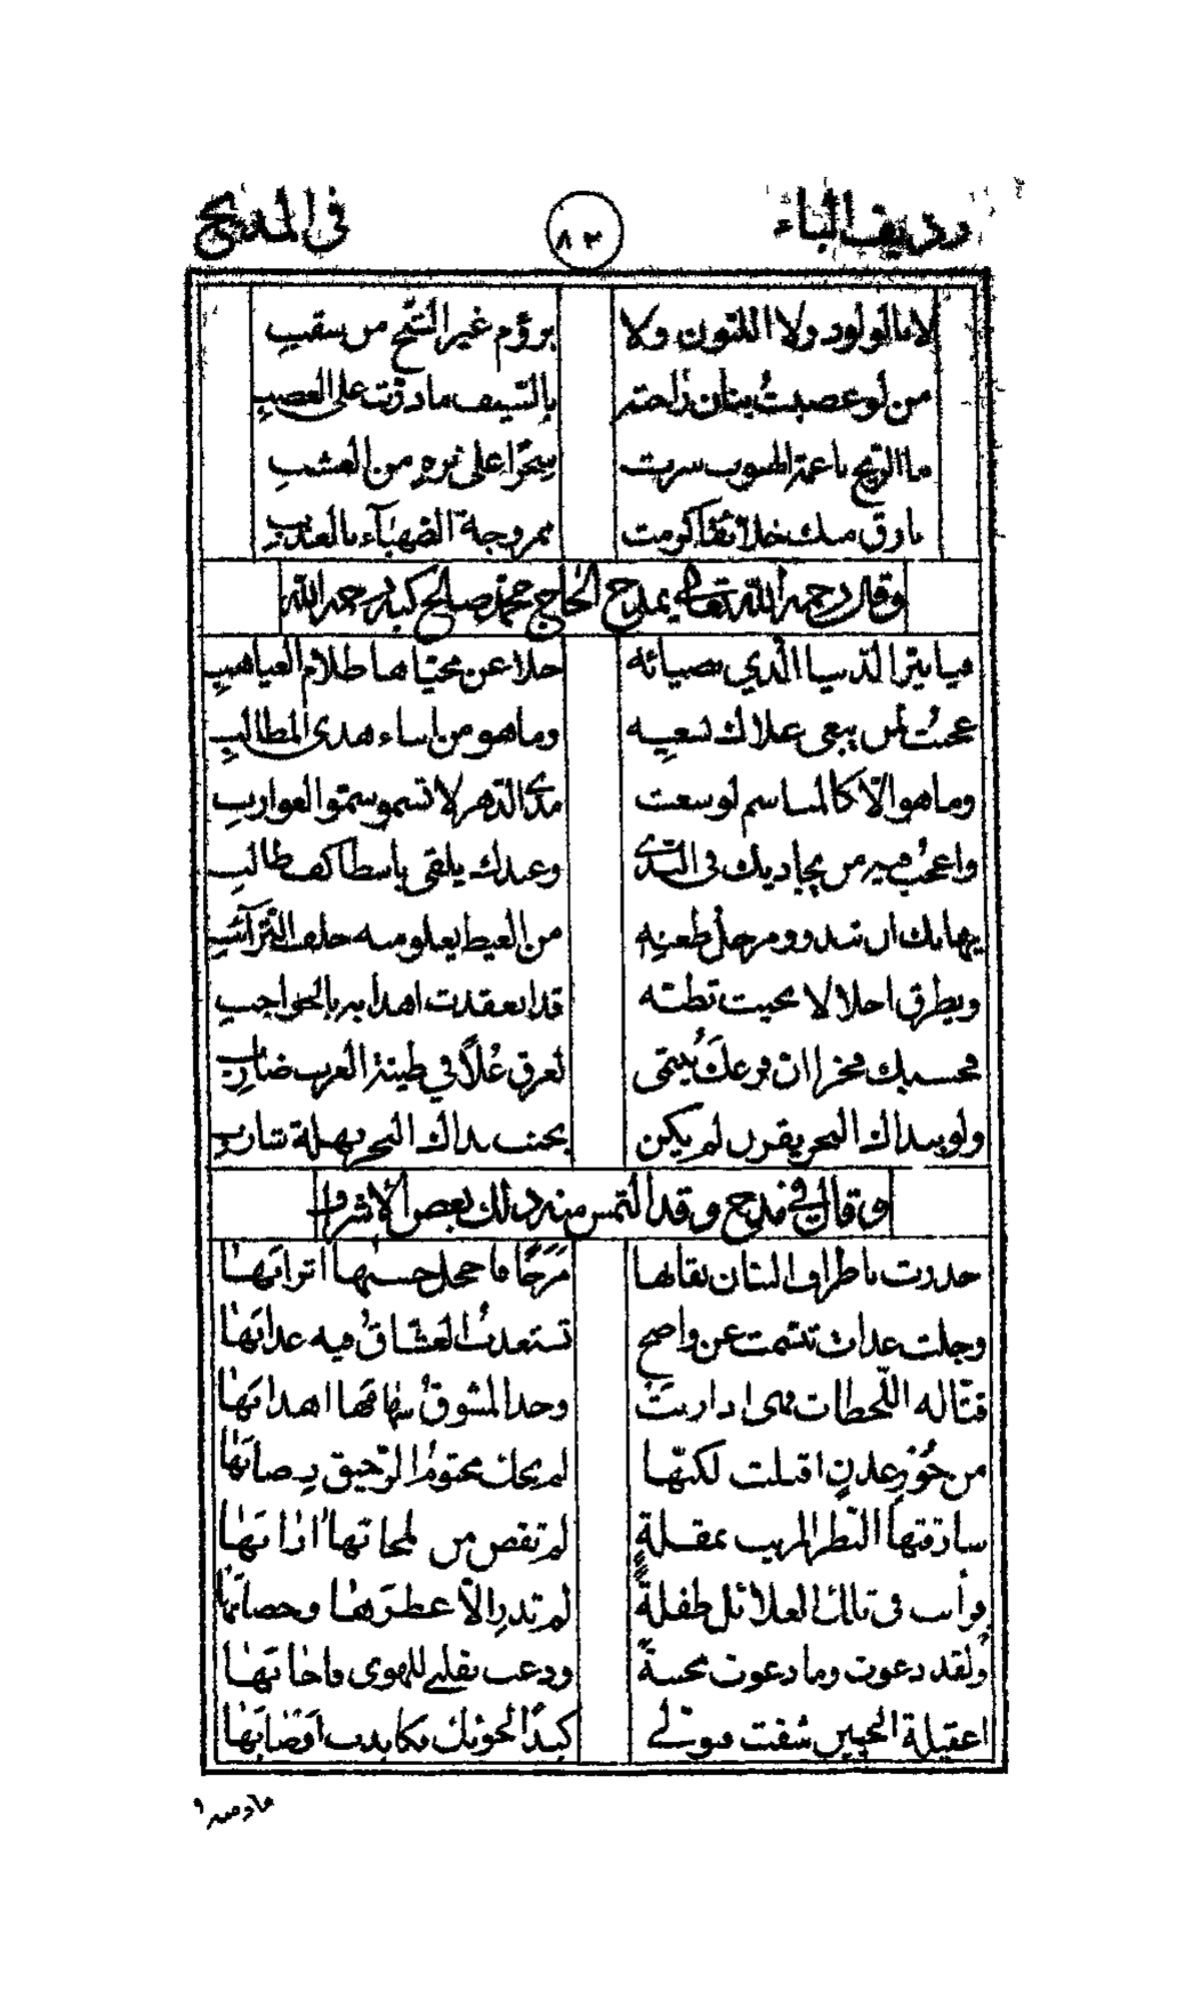 رديف الباء ٨٢ في المديح
لا بالولود ولا اللتون ولا برؤم غير الشح من سقب
من لو عصبت بنان راحته بالسيف ما درّت على العصب
ما الريح ناعمة الهبوب سرت سحرا على نزه من العشب
بارق منك خلائقا كرمت ممزوجة الصهباء بالعذب
وقال رحمه الله تعالى يمدح الحاج محمد صالح كبه رحمه الله
فيا بدر الدنيا الذي بضيائه جلا عن محياها ظلام الغياهب
عجبت لمن يبغي علاك بسعيه وما هو من أبناء هذي المطالب
وما هو الّا كالمناسم لو سعت مدى الدهر لا تسمو سمو الغوارب
واعجب فيه من يجاريك في الندى وعبدك يلقى باسطا كف طالب
يهابك ان تبدو ومرجل ضغنه من الغيظ يعلو منه خلف الترائب
ويطرق اجلالا بحيث تظنه قد انعقدت اهدابه بالحواجب
فحسبك فخرا ان فرعك ينتمى لعرق علاً في طينة العرب ضارب
ولو بنداك البحر يقرن لم يكن بجنب نداك البحر نهلة شارب
وقال في مدح وقد التمس منه ذلك بعض الأشراف
حدرت باطراف البنان نقابها مرحًا فاخجل حسنها اترابها
وجلت غداة تبسمت عن واضح تستعذب العشاق فيه عذابها
فتّانة اللحظات مهى اذا رنت وجد المشوق سهامها اهدابها
من حور عدن اقبلت لكنّها لم يحك مختوم الرحيق رضابها
سارقتها النظر المريب بمقلة لم تقض من لمحاتها
في تلك الغلائل طفلةً لم تدر الّا عطرها وخضابها
ولقد دعوت وما دعوت مجيبة ودعت بقلبي للهوى فاجابها
اعقيلة الحيين شفت